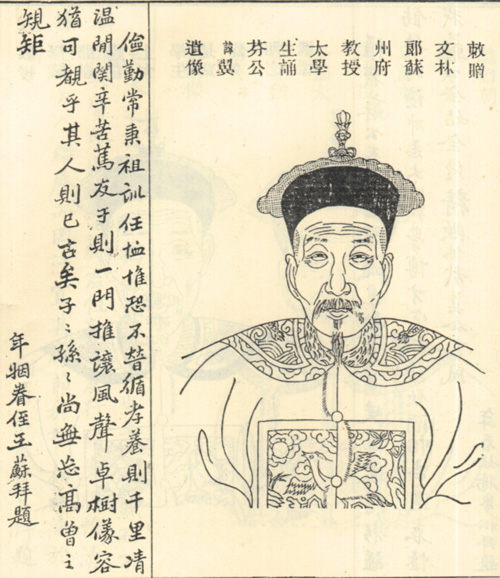 敕贈
文林
郎蘇
州府
教授
太學
生誦
芬公
諱
遺像
儉勤常秉祖訓任恤惟恐不替循孝養則千里凊
温間関辛苦篤友于則一門推讓風聲卓樹儀容
猶可覩乎其人則已古矣子〻孫〻尚無忘高曾之
䂓矩
年姻眷侄王蘇拜題